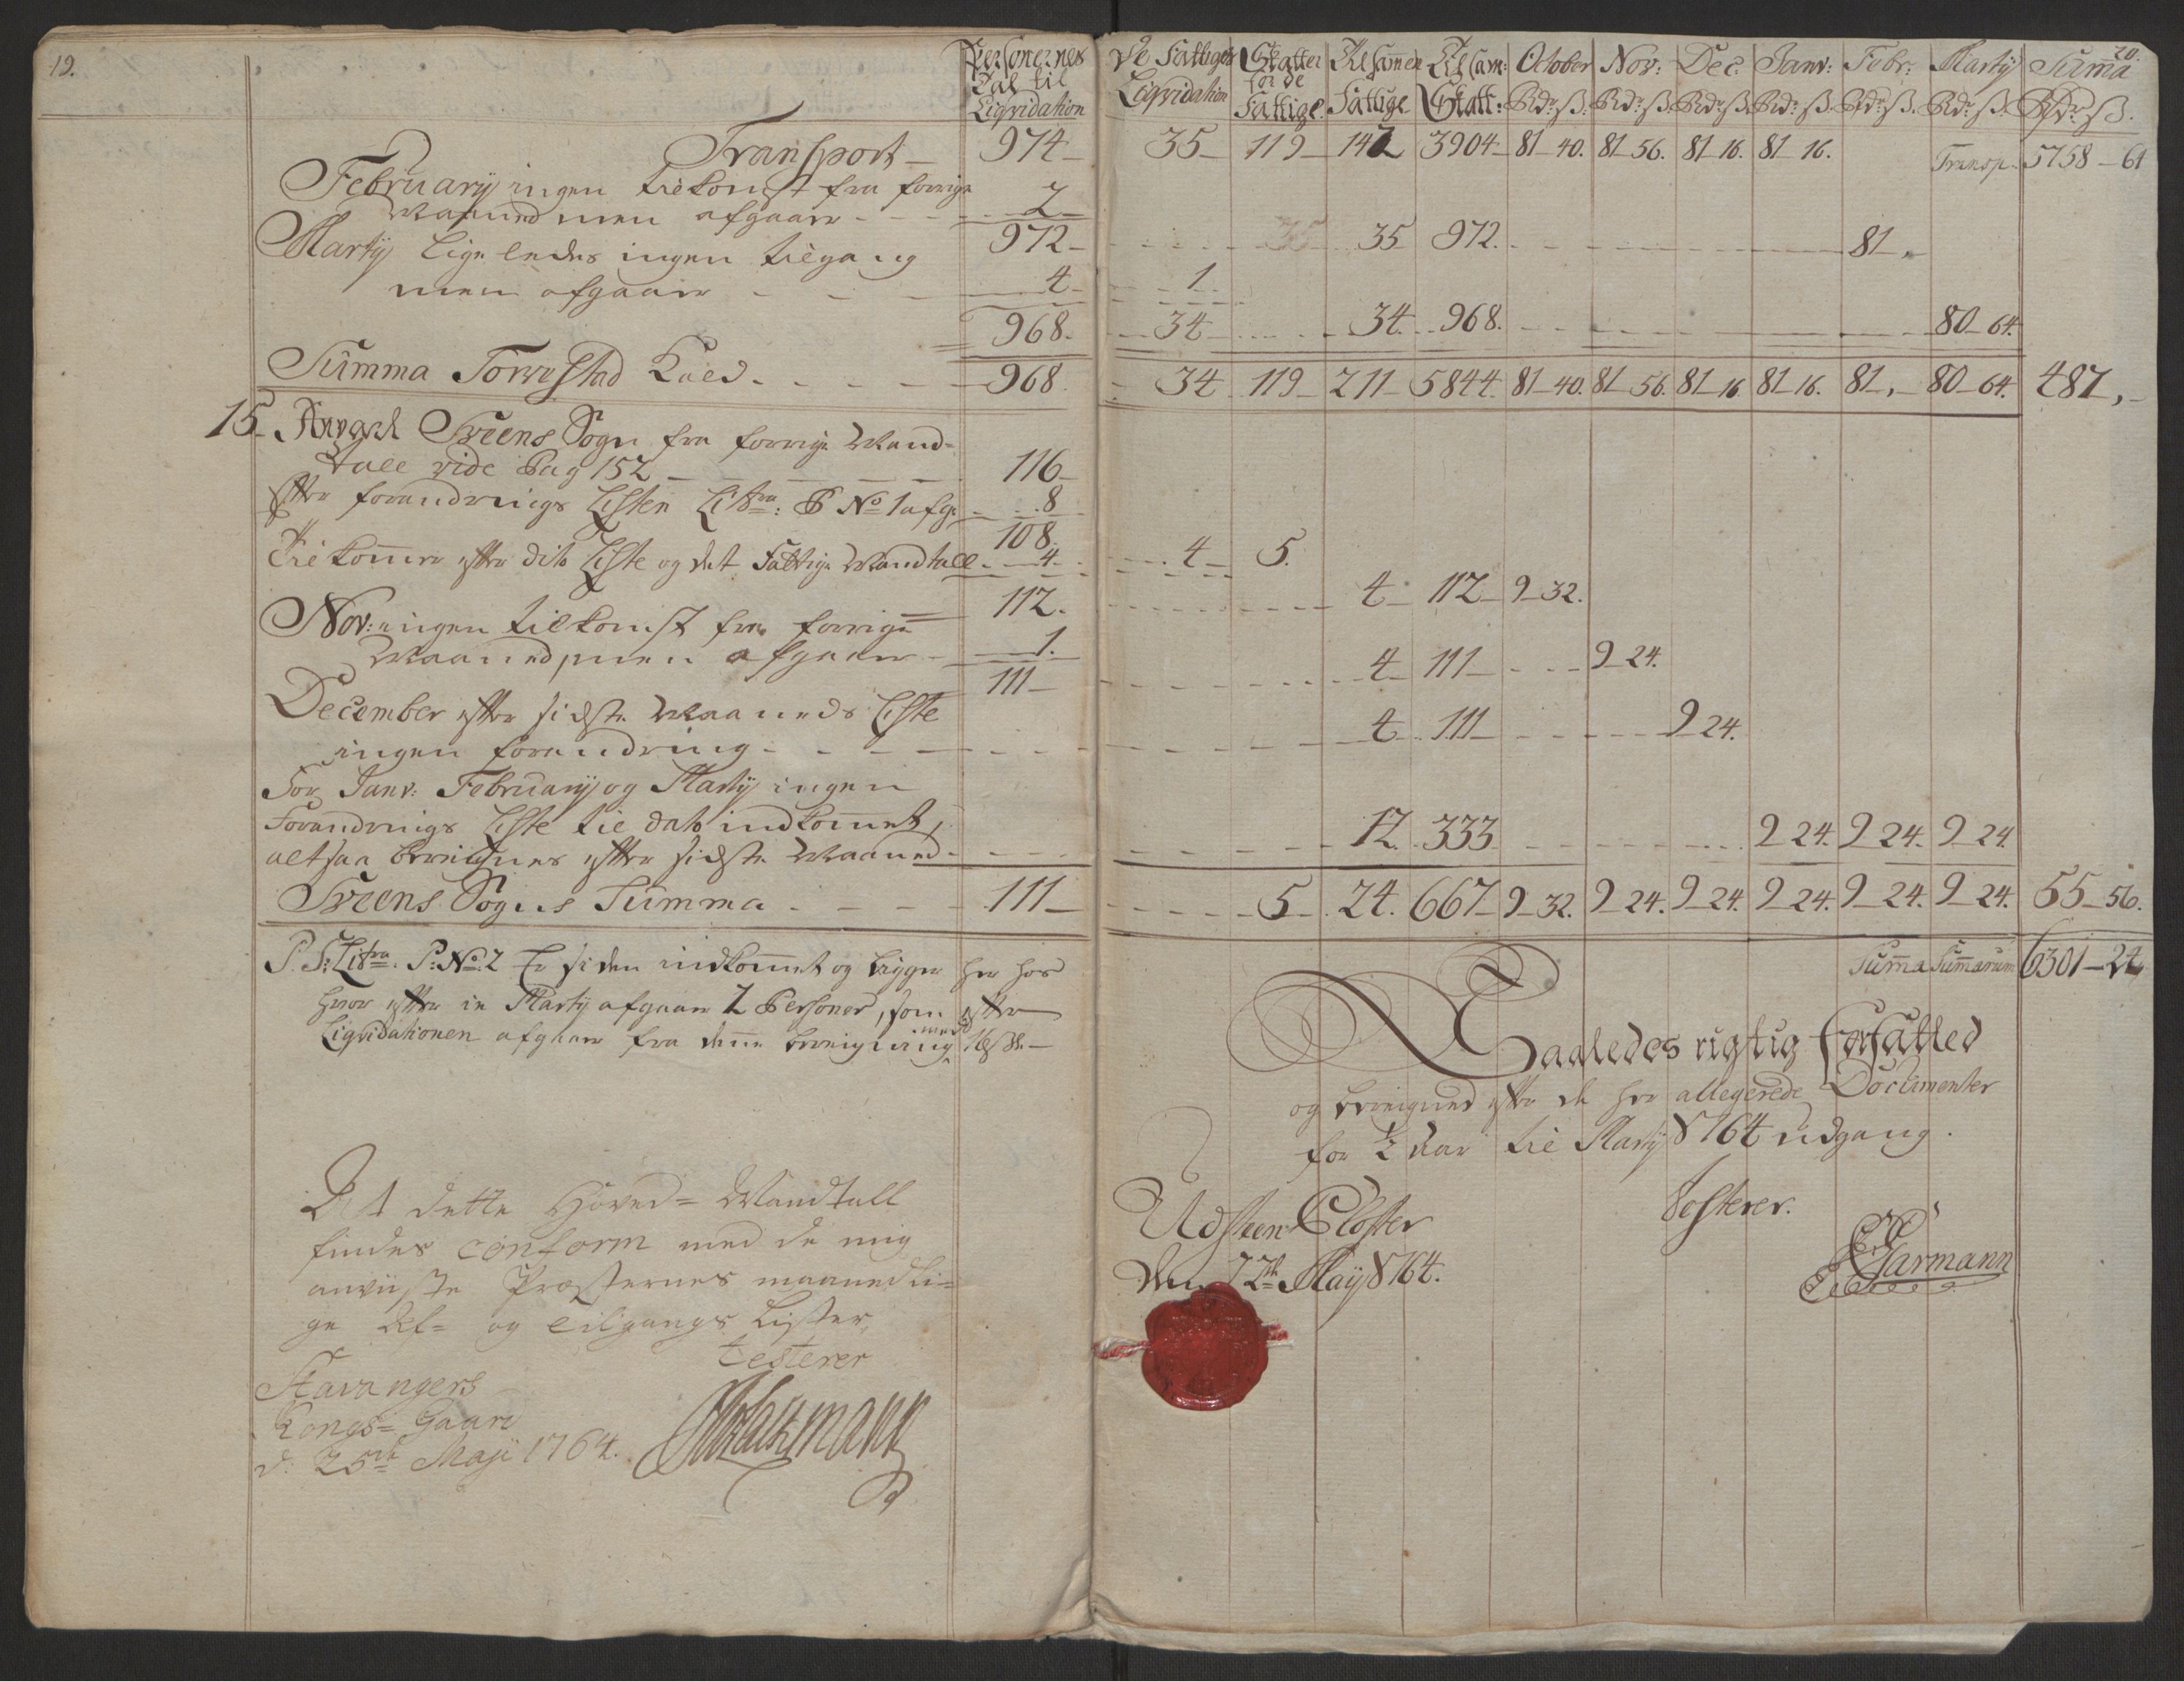 19.
Personernes
Tal til
Liqvidation
Transport — 974 —
February ingen tilkomst fra forrige
Maaned men afgaaer - - - 2 —
972 —
Marty Ligeledes ingen tilgang
men afgaaer - - - 4 —
968.
Summa Torvestad Kald - - - 968.
15. Sveens Sogn fra forrige Mand=
tall vide Pag 152 — — — 116 —
efter forandrings Listen Litra: P No 1 afg: - 8
108.
Tilkommer efter dito Liste og det Fattige Mandtall - 4 -
112.
Nov: ingen tilkomst fra forrige
Maaned, men afgaaer - 1.
111 —
December efter sidste Maaneds Liste
ingen forandring - - -
For Janv: February og Marty ingen
Forandrings Liste til dato indkommet,
altsaa bereignes efter sidste Maaned - - -
Sveens Sogns Summa - - - 111 —
P. S: Litra. P: No: 2 Er siden indkommet og ligger her hos
hvor efter in Marty afgaaer 2 Personer, som efter
Liqvidationen afgaaer fra denne bereigning med 16 s. —
At dette Hoved= Mandtall
findes conform med de mig
anviiste Præsternes maanedli=
ge Af= og Tilgangs Lister,
testerer
Stavangers
Kongs= Gaard
d: 25de Maji 1764.
20.
De Fattiges Liqvidation
Skatter for de Fattige
Tilsammen Fattige
Tilsam: Skatt:
October Rdr. ß.
Nov: Rdr. ß.
Dec: Rdr. ß.
Janv: Rdr. ß.
Febr: Rdr. ß.
Marty Rdr. ß.
Summa Rdr. ß.
35 — 119 — 142 3904 — 81 — 40. 81 56. 81 16. 81 16. Transp. 5758 — 61
35 35 972. - - - 81 „
1.
34 - - - 34. 968. - - - 80 — 64.
34 119 — 211 — 5844. 81 — 40. 81 — 56. 81 16 81 16. 81 „ — 80 — 64. 487 „ —
4 — 5.
4 — 112 — 9 — 32.
4 — 111 — - - 9 — 24.
4 - 111 — - - 9 24.
12. 333 - - - 9 24. 9 24. 9 24
5 — 24. 667 — 9 — 32. 9 — 24. 9 — 24. 9 — 24. 9 — 24. 9 — 24. 55 — 56.
Summa Summarum 6301 — 24
Saaledes rigtig forfatted
og bereigned efter de her allegerede Documenter
for ½ Aar til Marty 1764 udgang.
Testerer.
Udsteen Closter
den 12te May 1764.
Garmann